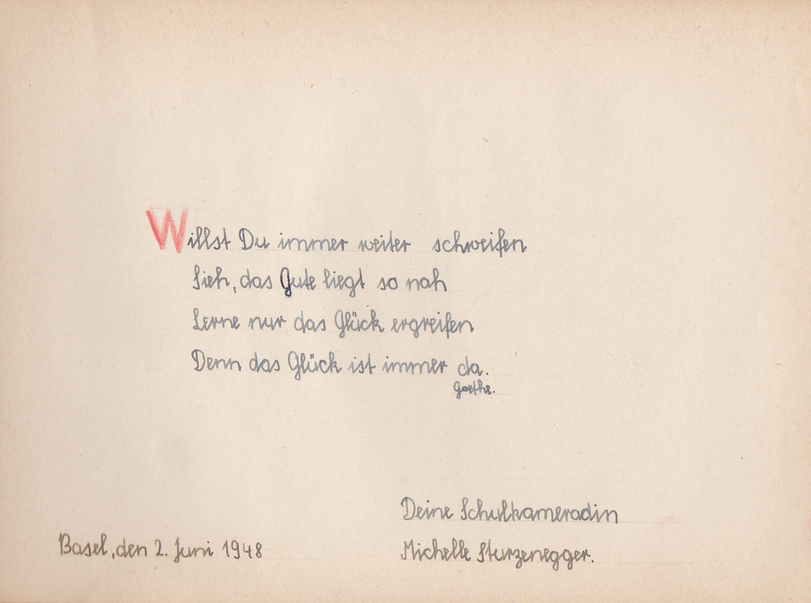 Willst Du immer weiter schweifen
Sieh, das Gute liegt so nah
Lerne nur das Glück ergreifen
Denn das Glück ist immer da.
Goethe.
Deine Schulkameradin
Basel, den 2. Juni 1948
Michelle Sturzenegger.